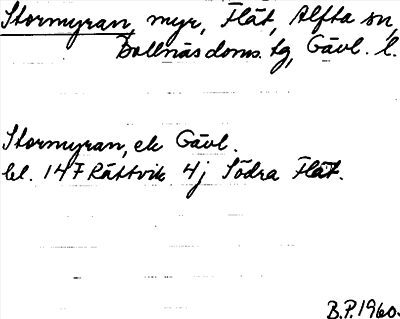 Stormyran, myr, Flåt, Alfta sn,
Bollnäs doms. tg, Gävl. l.
Stormyran, ek Gävl.
bl. 147 Rättvik 4j Södra Flåt.
B.P. 1960.